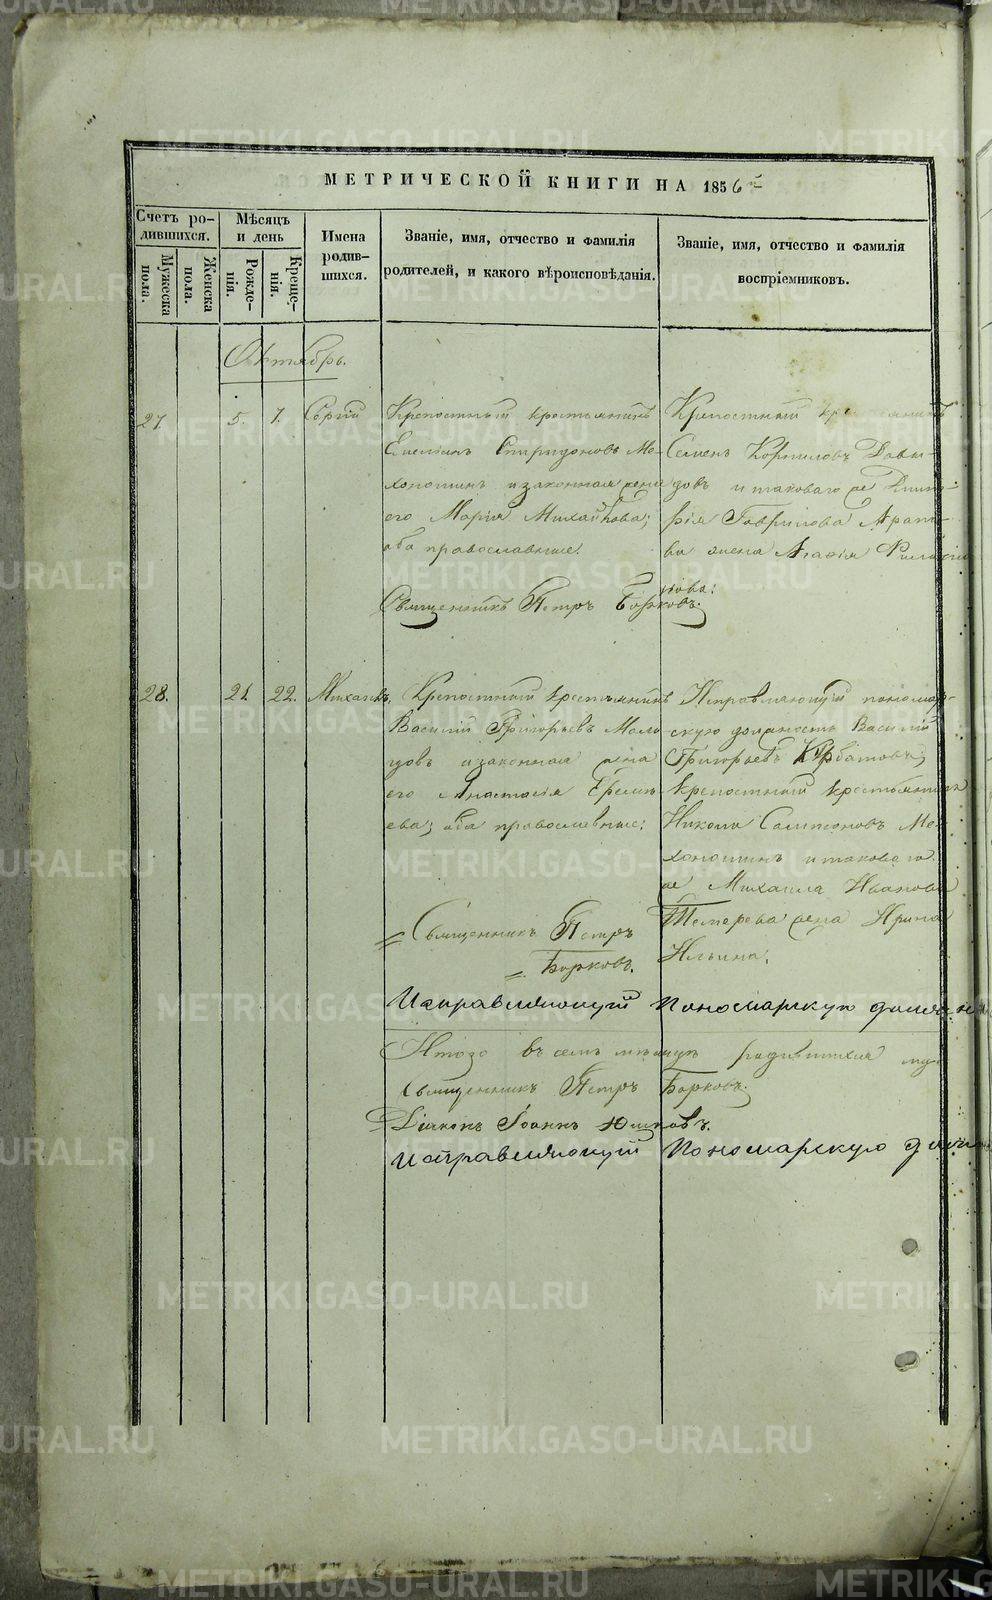 МЕТРИЧЕСКОЙ КНИГИ НА 1856
Счетъ ро-
дившихся.
Мужеска
пола.
Женска
пола.
Мѣсяцъ
и день
Рожде-
нія.
Креще-
нія.
Имена
родив-
шихся.
Званіе, имя, отчество и фамилія
родителей, и какого вѣроисповѣданія.
Званіе, имя, отчество и фамилія
воспріемниковъ.
Октябрь.
27.
5.
7.
Сергій
Крепостный крестьянинъ
Спиридоновъ Мо-
хоношинъ и законная жена
его Марія Михайлова;
оба православные.
Священникъ Петръ Борковъ.
Крепостный крестьянинъ
Семенъ Корниловъ Давы-
довъ и таковаго же Дмит-
рія Гаврилова Арапо-
ва жена Агафія
28.
21.
22.
Михаилъ.
Крепостный крестьянинъ
Василій Григорьевъ Моло
цовъ и законная жена
его Анастасія Ереме
ева; оба православные:
Священникъ Петръ
Борковъ.
Исправляющій пономар-
скую должность Василій
Григорьевъ Курбатовъ;
крепостный крестьянинъ
Никола Самсоновъ Мо-
хоношинъ и таковаго
же Михаила Иванова
жена Ирина
Ильина;
Исправляющій Пономарскую
Итого въ семъ мѣсяце родившихся
Священникъ Петръ Борковъ.
Діаконъ Іоаннъ Юшковъ.
Исправляющій Пономарскую
METRIKI.GASO-URAL.RU